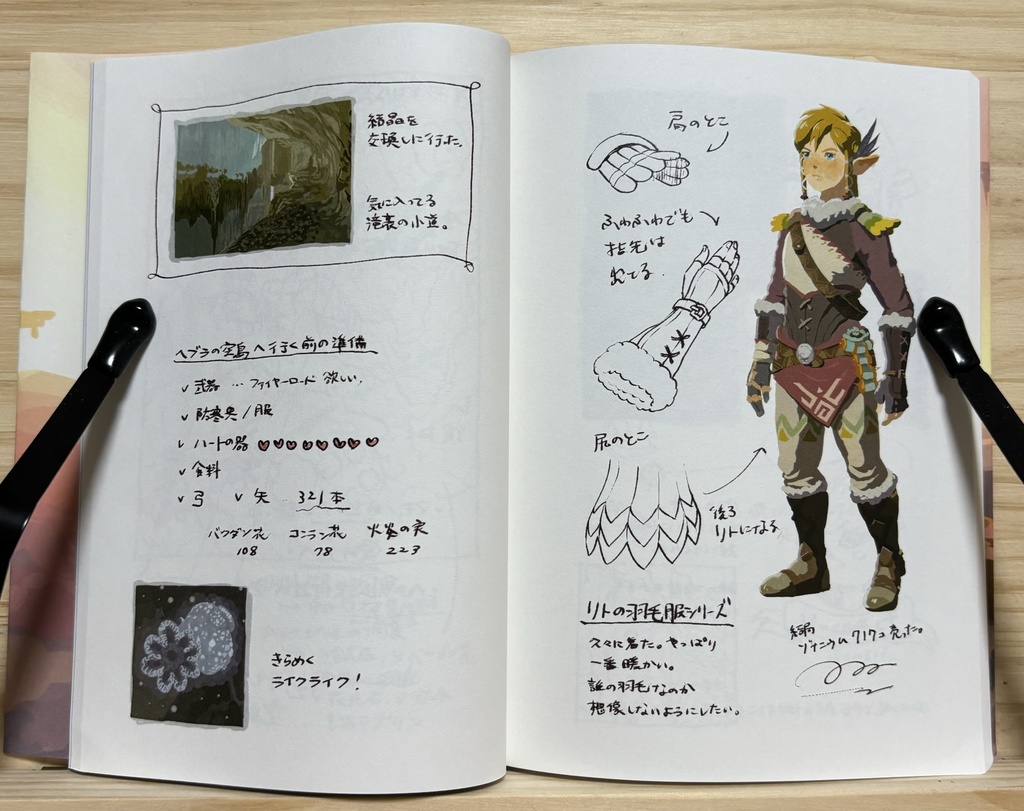 結晶を
交換しに行った。
気に入ってる
滝裏の小道。
ヘブラの空島へ行く前の準備
✓ 武器 … ファイヤーロード 欲しい。
✓ 防寒具/服
✓ ハートの器 ♥♥♥♥♥♥♥♥
✓ 食料
✓ 弓 ✓ 矢 … 321本
バクダン花 コンラン花 火炎の実
108 78 223
きらめく
ライクライク!
肩のとこ
ふわふわでも
指先は
出てる。
尻のとこ
後ろ
リトになる
リトの羽毛服シリーズ
久々に着た。やっぱり
一番暖かい。
誰の羽毛なのか
想像しないようにしたい。
結局
ゾナニウム 717コ 売った。